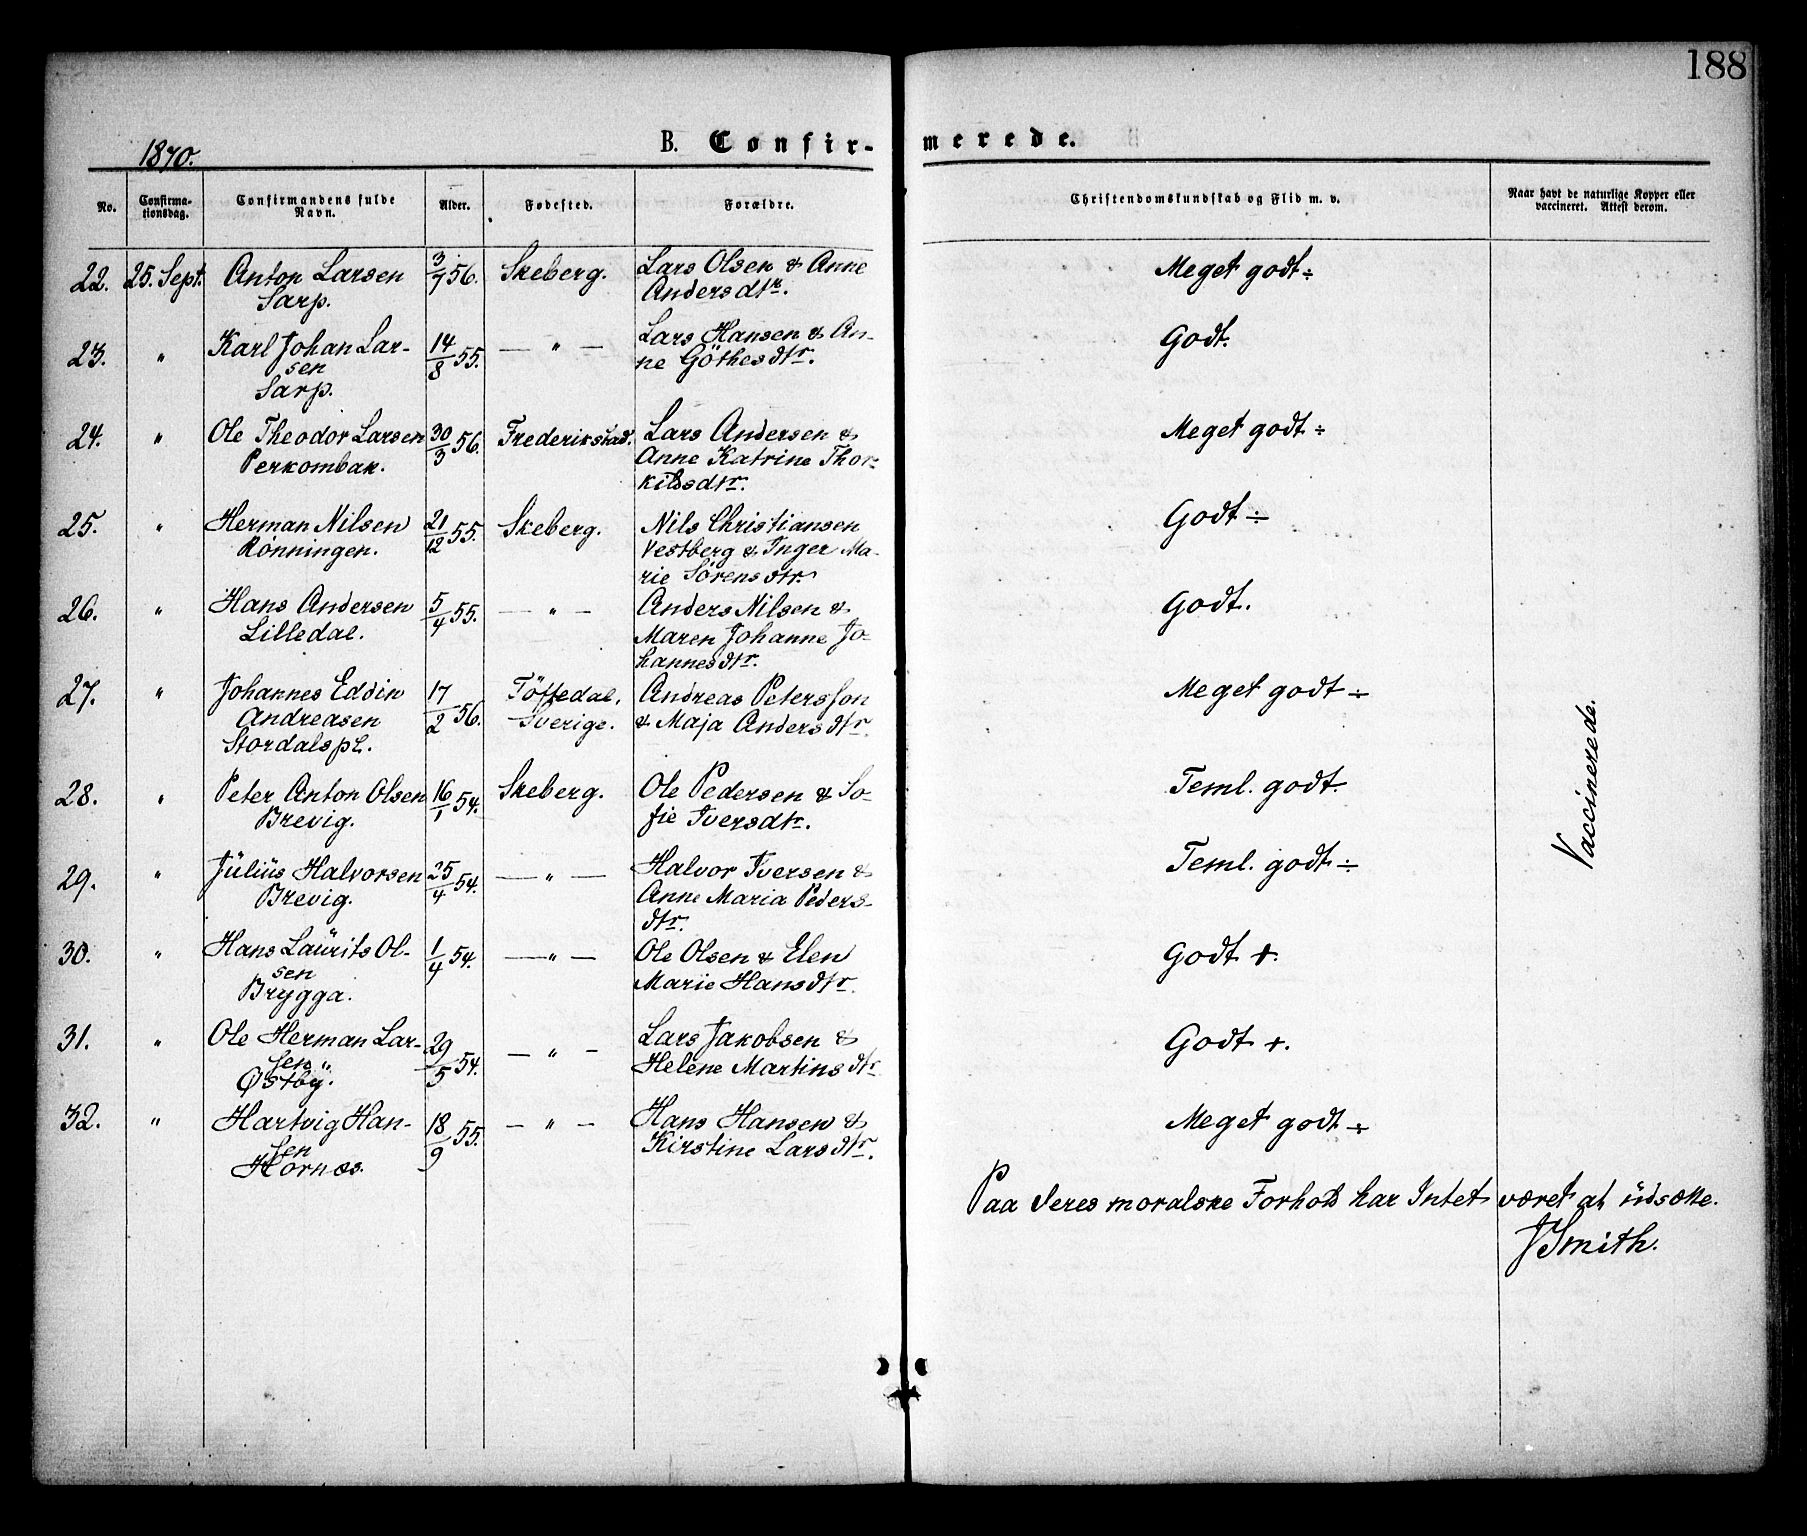 188
1870.
B. Confir-
merede.
No.
Confirma-
tionsdag.
Confirmandens fulde
Navn.
Alder.
Fødested.
Forældre.
Christendomskundskab og Flid m. v.
Naar havt de naturlige Kopper eller
vaccineret. Attest derom.
22. 25. Sept. Anton Larsen 3/7 56. Skeberg. Lars Olsen & Anne Meget godt ÷
Sarp. Andersdtr.
23. " Karl Johan Lar- 14/8 55. — " — Lars Hansen & An- Godt.
sen ne Göthesdtr.
Sarp.
24. " Ole Theodor Larsen 30/3 56. Frederikstad. Lars Andersen & Meget godt ÷
Perkombak. Anne Katrine Thor-
kildsdtr.
25. " Herman Nilsen 21/12 55. Skeberg. Nils Christiansen Godt ÷
Rønningen. Vestberg & Inger Ma-
rie Sörensdtr.
26. " Hans Andersen 5/4 55. — " — Anders Nilsen & Godt.
Lilledal. Maren Johanne Jo-
hannesdtr.
27. " Johannes Eddin 17/2 56. Töftedal. Andreas Petersson Meget godt ÷
Andreasen Sverige. & Maja Andersdtr.
Stordalspl.
28. " Peter Anton Olsen 16/1 54. Skeberg. Ole Pedersen & So- Teml. godt.
Brevig. fie Iversdtr.
29. " Julius Halvorsen 25/4 54. — " — Halvor Iversen & Teml. godt ÷
Brevig. Anne Maria Peders-
dtr.
30. " Hans Laurits Ol- 1/4 54. — " — Ole Olsen & Elen Godt +.
sen Marie Hansdtr.
Brygga.
31. " Ole Herman Lar- 29/5 54. — " — Lars Jakobsen & Godt +.
sen Helene Martinsdtr
Østby.
32. " Hartvig Han- 18/9 55. — " — Hans Hansen & Meget godt ÷
sen Kirstine Larsdtr.
Hornæs.
Vaccinerede.
Paa deres moralske Forhold har Intet været at udsætte.
J Smith.